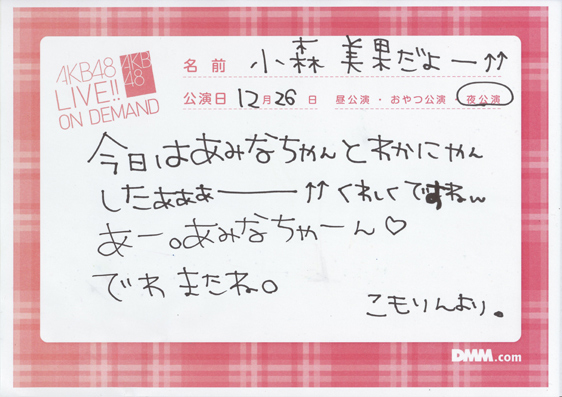 AKB48
LIVE!!
ON DEMAND
AKB
48
名前 小森 美果だよー↑↑
公演日 12月26日 昼公演・おやつ公演・夜公演
今日はあみなちゃんとわかにゃん
したぁぁぁー↑↑くわしくですねw
あー。あみなちゃーん♡
でわまたね。
こもりんより。
DMM.com